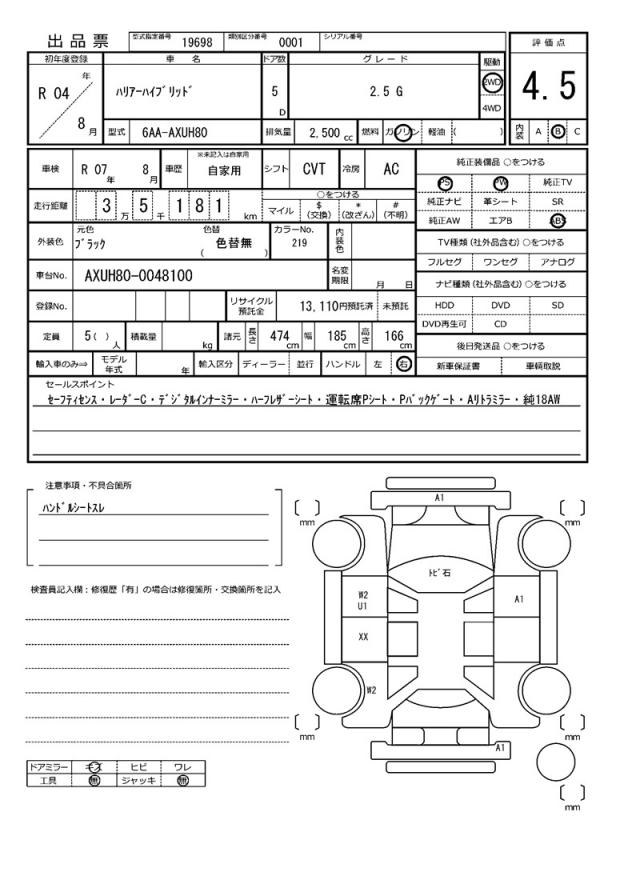 出品票 型式指定番号 19698 類別区分番号 0001 シリアル番号
評価点
4.5
初年度登録 車名 ドア数 グレード 駆動
R 04 年 8 月 ハリアーハイブリッド 5 D 2.5 G 2WD 4WD
型式 6AA-AXUH80 排気量 2,500 cc 燃料 ガソリン 軽油 ( )
内装 A B C
車検 R 07 年 8 月 車歴 ※未記入は自家用 自家用 シフト CVT 冷房 AC
走行距離 3 万 5 千 1 8 1 km
○をつける
マイル $ (交換) * (改ざん) # (不明)
外装色 元色 ブラック 色替 色替無 ( ) カラーNo. 219 内装色
車台No. AXUH80-0048100 名変期限 月 日
登録No. リサイクル預託金 13,110円預託済 未預託
定員 5( ) 人 積載量 kg 諸元 長さ 474 cm 幅 185 cm 高さ 166 cm
輸入車のみ⇒ モデル年式 年 輸入区分 ディーラー 並行 ハンドル 左 右
純正装備品 ○をつける
PS PW 純正TV
純正ナビ 革シート SR
純正AW エアB ABS
TV種類 (社外品含む) ○をつける
フルセグ ワンセグ アナログ
ナビ種類 (社外品含む) ○をつける
HDD DVD SD
DVD再生可 CD
後日発送品 ○をつける
新車保証書 車輌取説
セールスポイント
セーフティセンス・レーダーC・デジタルインナーミラー・ハーフレザーシート・運転席Pシート・Pバックゲート・Aリトラミラー・純18AW
注意事項・不具合箇所
ハンドルシートスレ
検査員記入欄：修復歴「有」の場合は修復箇所・交換箇所を記入
A1
mm
mm
トビ石
W2
U1
A1
XX
W2
mm
mm
A1
mm
ドアミラー キズ ヒビ ワレ
工具 無 ジャッキ 無